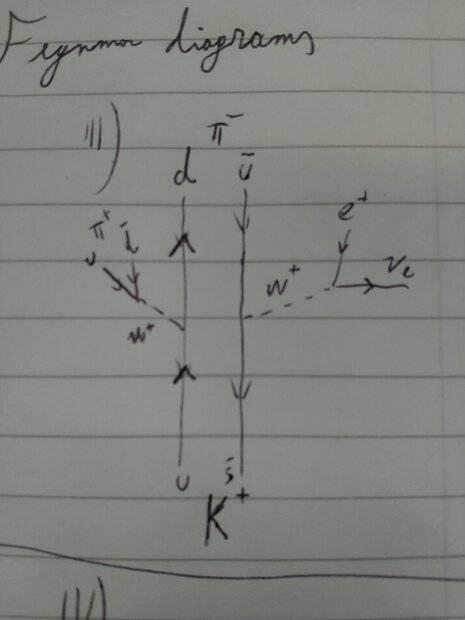 Feynman diagrams
III)
π⁻
d ū
e⁺
π⁺ d̄
u
νe
W⁺
W⁺
u s̄
K⁺
IV)